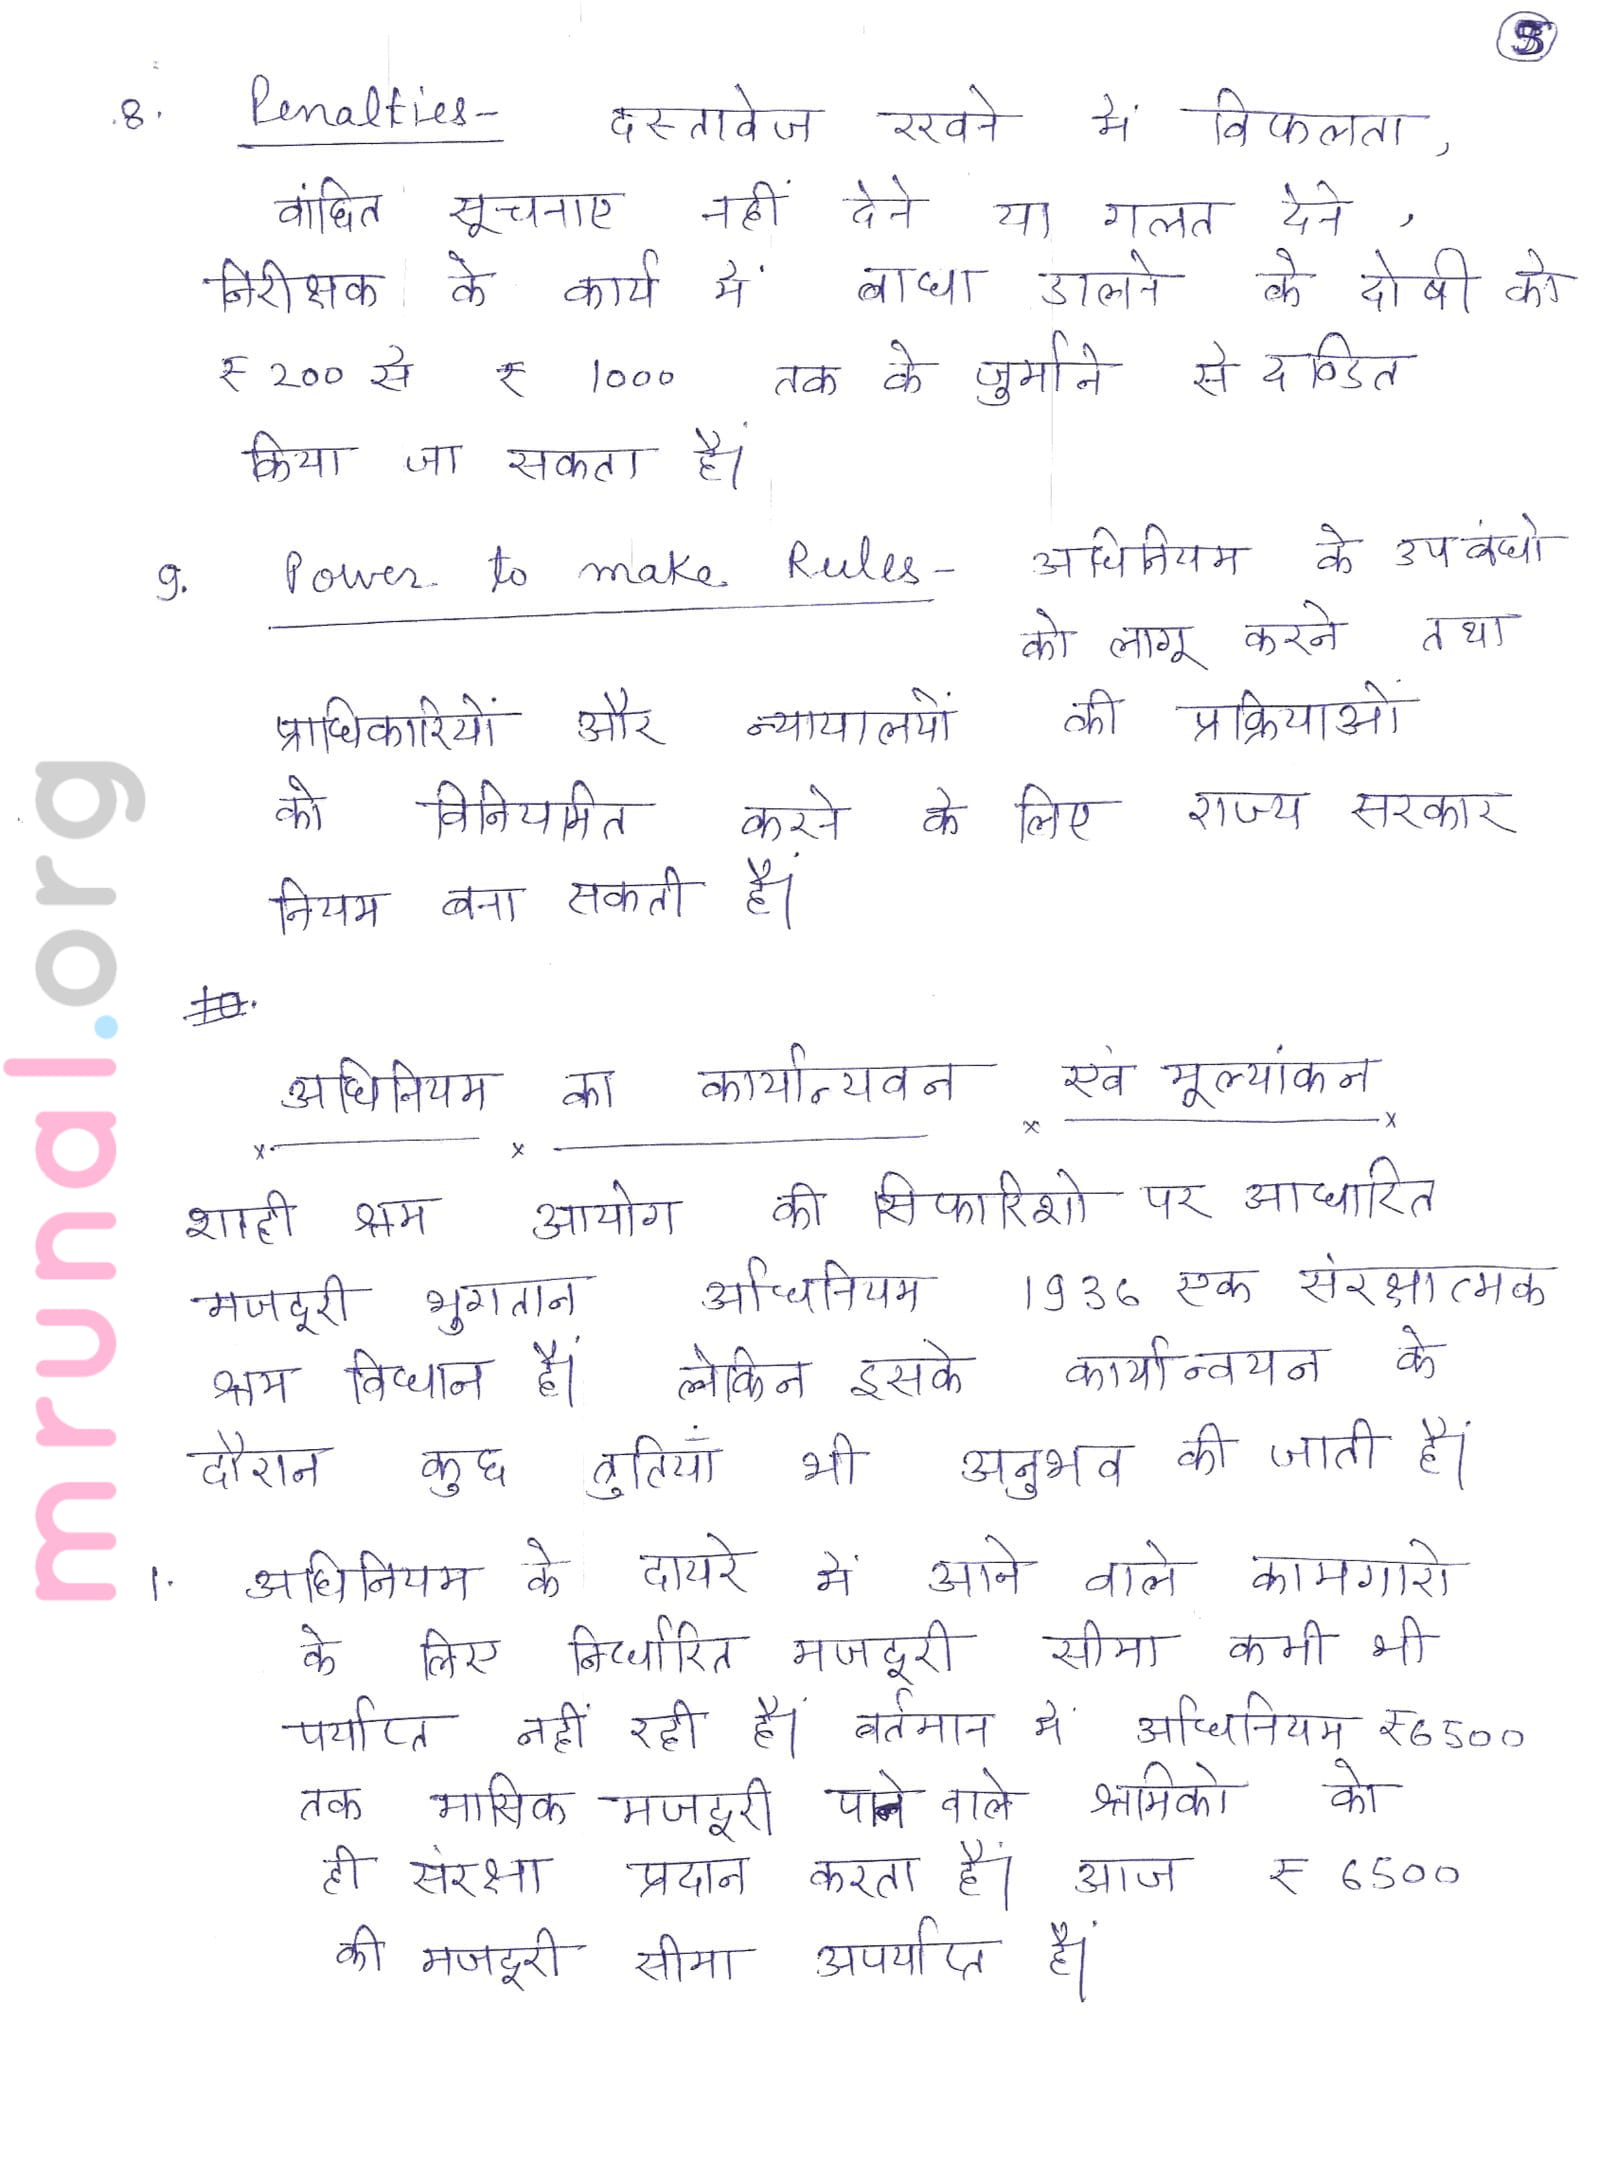 5
8. Penalties- दस्तावेज रखने में विफलता,
वांछित सूचनाए नहीं देने या गलत देने,
निरीक्षक के कार्य में बाधा डालने के दोषी को
₹ 200 से ₹ 1000 तक के जुर्माने से दण्डित
किया जा सकता हैं।
9. Power to make Rules- अधिनियम के उपबंधो
को लागू करने तथा
प्राधिकारियों और न्यायालयों की प्रक्रियाओं
को विनियमित करने के लिए राज्य सरकार
नियम बना सकती हैं।
10.
अधिनियम का कार्यान्यवन एवं मूल्यांकन
शाही श्रम आयोग की सिफारिशो पर आधारित
मजदूरी भुगतान अधिनियम 1936 एक संरक्षात्मक
श्रम विधान हैं। लेकिन इसके कार्यान्वयन के
दौरान कुछ त्रुतियाँ भी अनुभव की जाती हैं।
1. अधिनियम के दायरे में आने वाले कामगारो
के लिए निर्धारित मजदूरी सीमा कभी भी
पर्याप्त नहीं रही हैं। वर्तमान में अधिनियम ₹6500
तक मासिक मजदूरी पाने वाले श्रमिको को
ही संरक्षा प्रदान करता हैं। आज ₹ 6500
की मजदूरी सीमा अपर्याप्त हैं।
mrunal.org